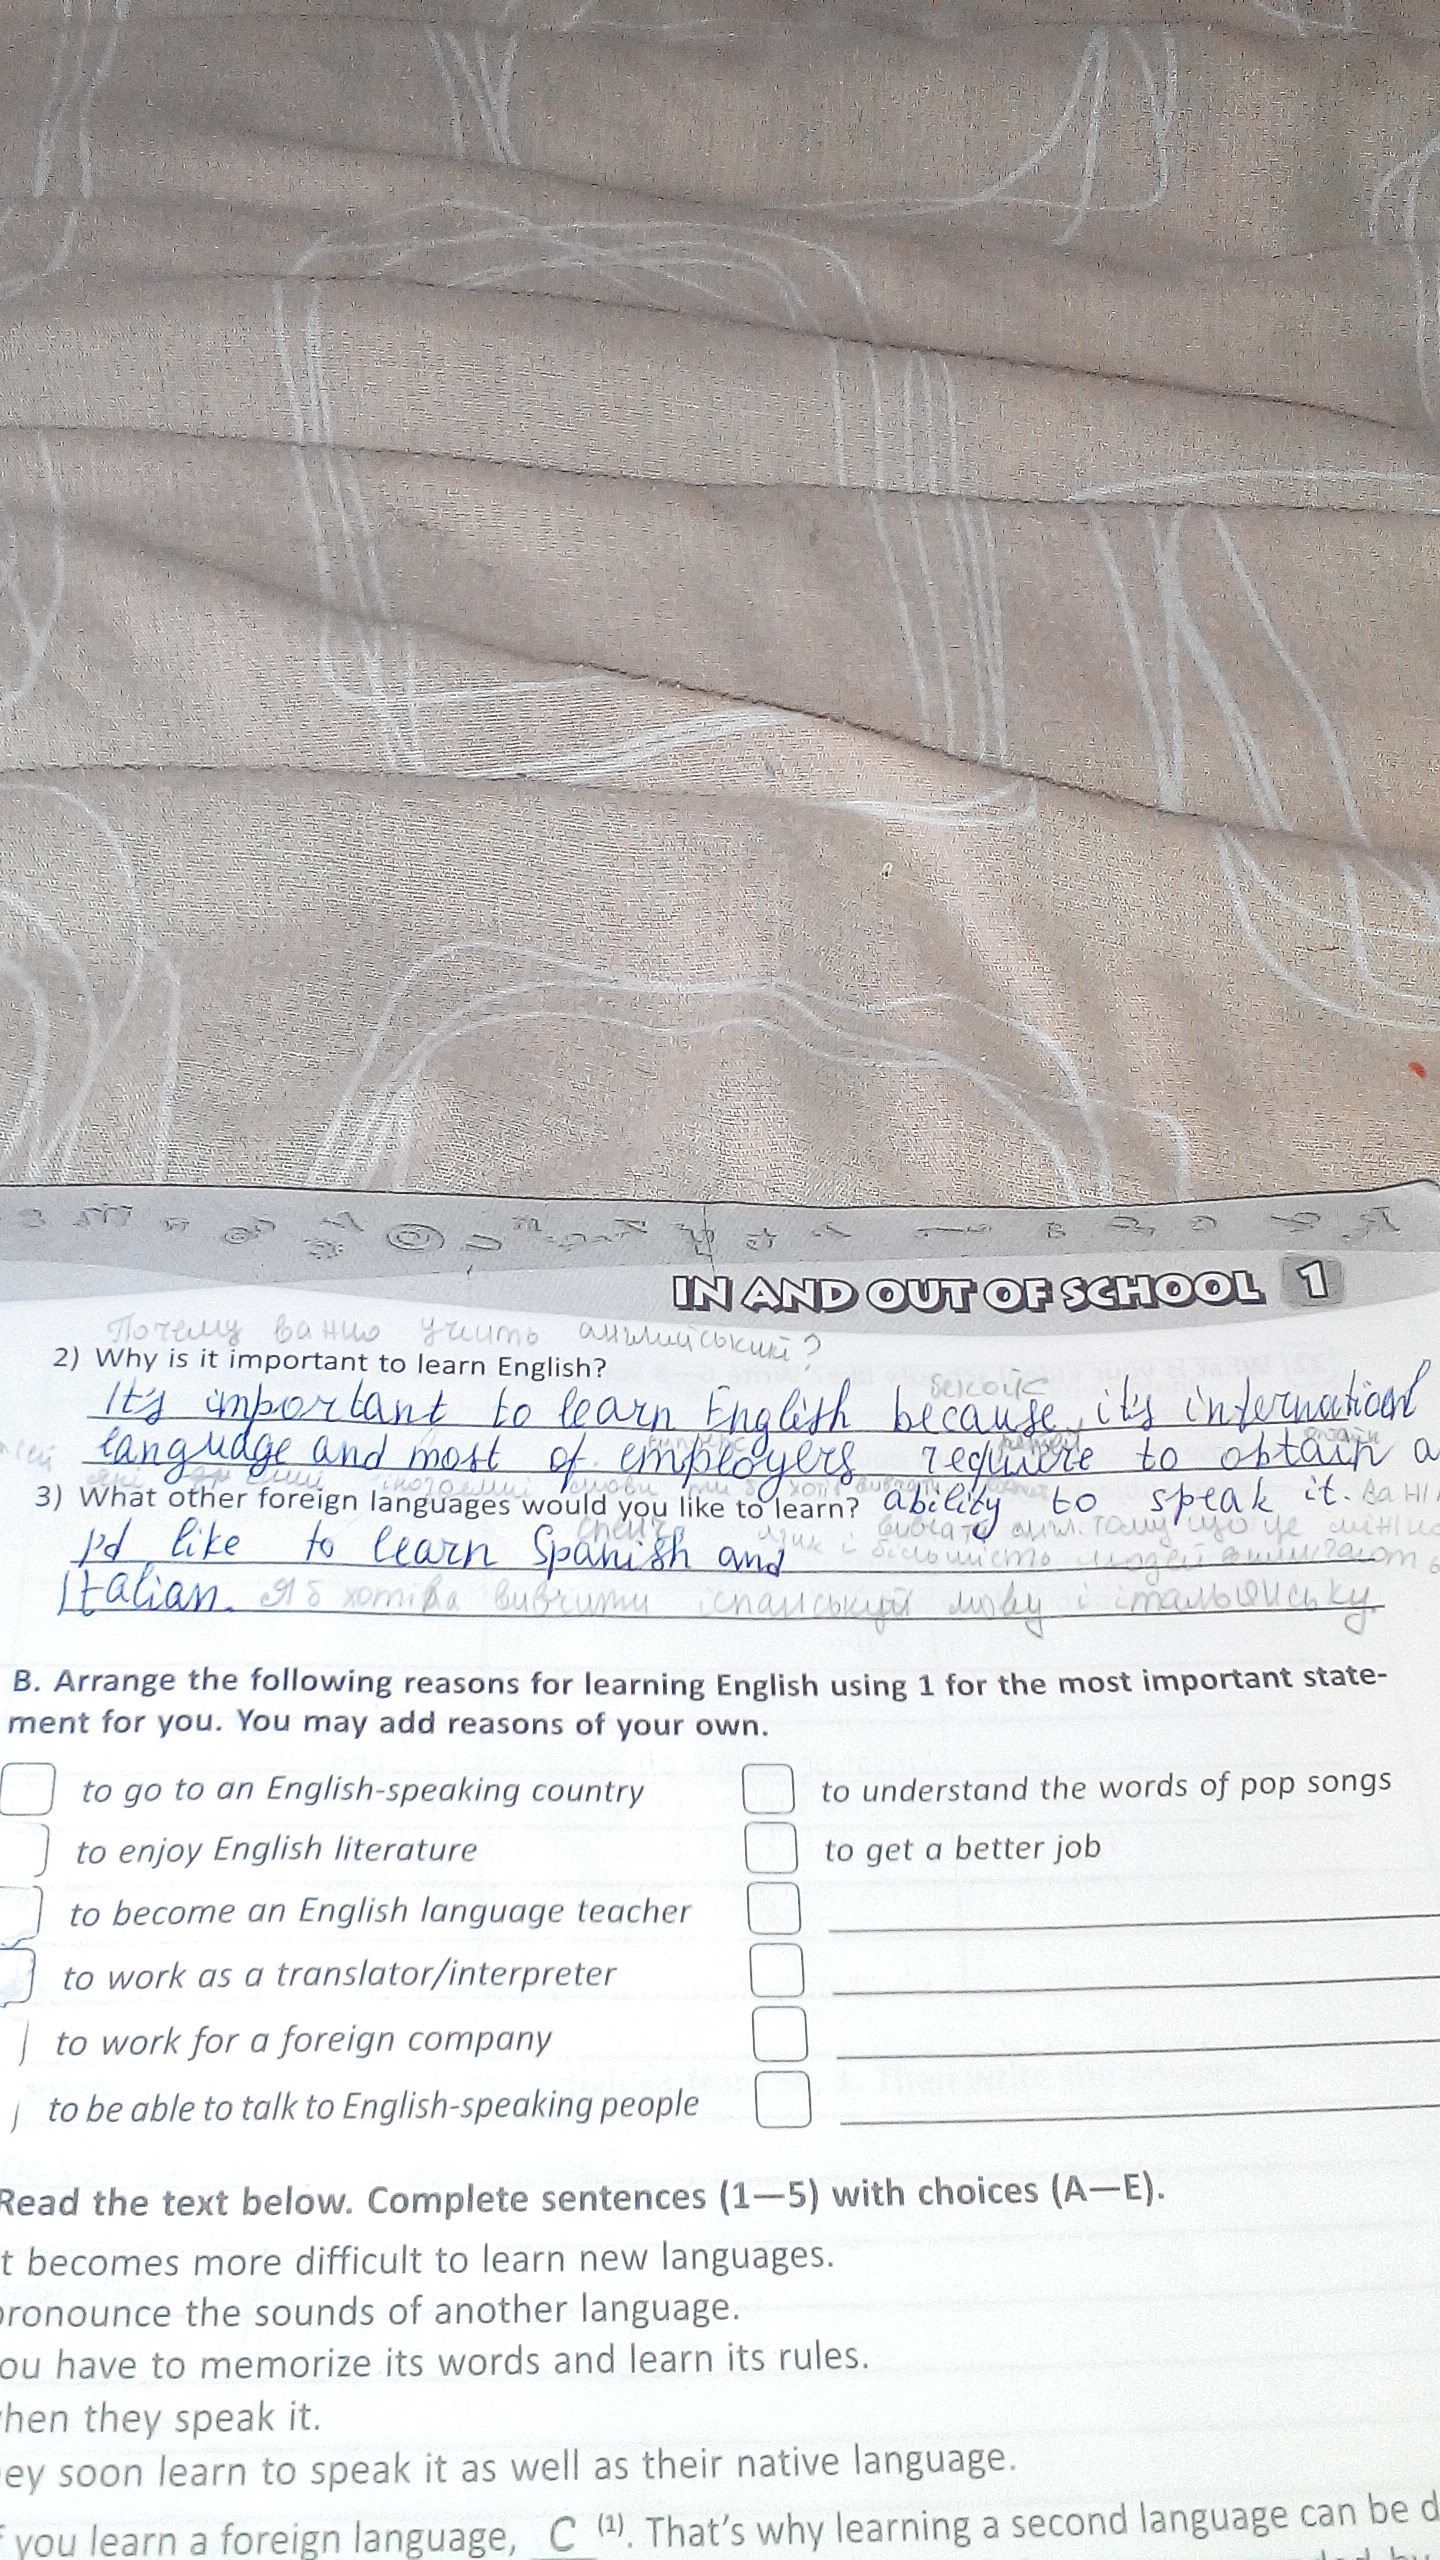 IN AND OUT OF SCHOOL 1
Почему важно учить английський?
2) Why is it important to learn English?
It's important to learn English because, it's international
language and most of employers require to obtain a
3) What other foreign languages would you like to learn? ability to speak it.
I'd like to learn Spanish and
Italian. Я б хотіла вивчити іспанську мову і італьянську.
B. Arrange the following reasons for learning English using 1 for the most important state-
ment for you. You may add reasons of your own.
to go to an English-speaking country
to understand the words of pop songs
to enjoy English literature
to get a better job
to become an English language teacher
to work as a translator/interpreter
to work for a foreign company
to be able to talk to English-speaking people
Read the text below. Complete sentences (1—5) with choices (A—E).
t becomes more difficult to learn new languages.
pronounce the sounds of another language.
ou have to memorize its words and learn its rules.
when they speak it.
ey soon learn to speak it as well as their native language.
f you learn a foreign language, C (1). That's why learning a second language can be d